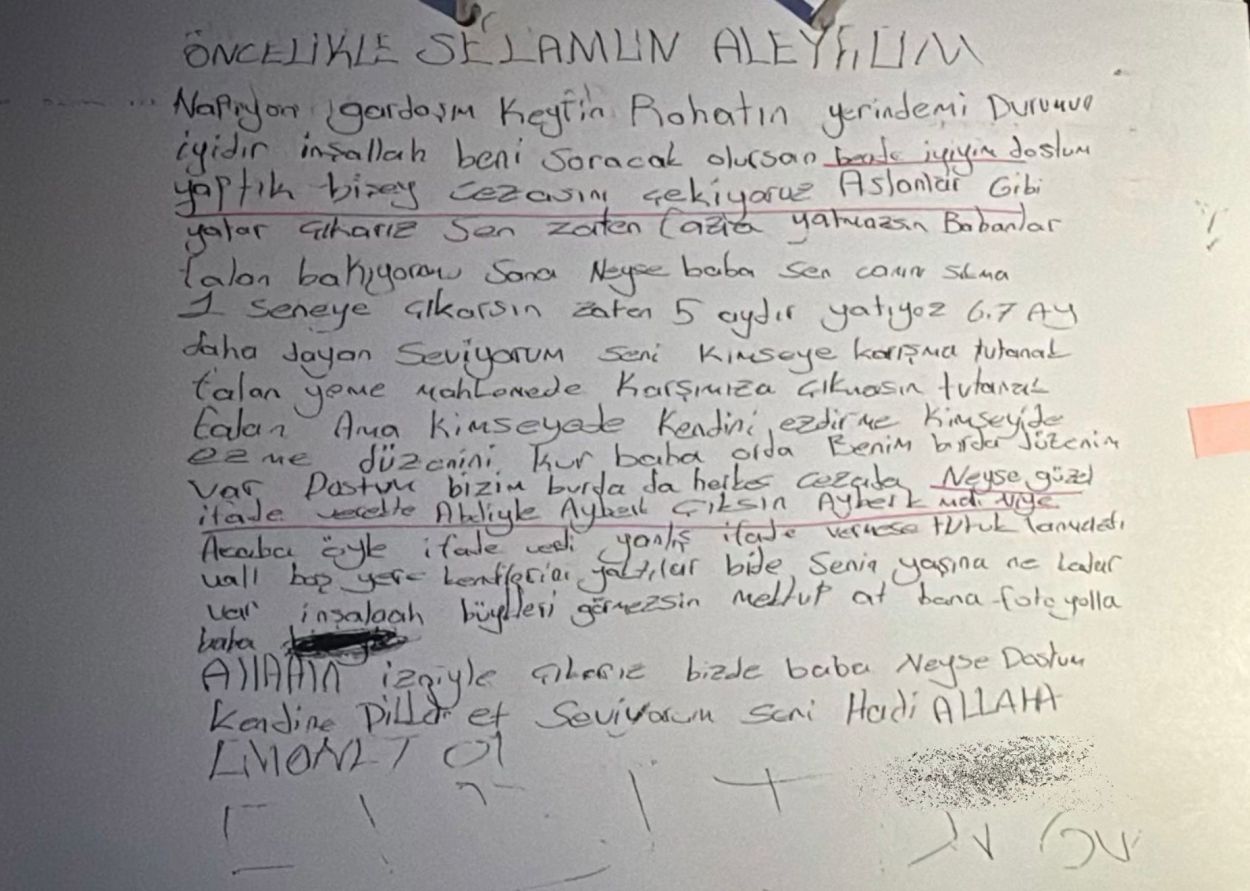 ÖNCELİKLE SELAMUN ALEYKUM
Napıyon gardaşım Keyfin Rahatın yerindemi Durumun
iyidir inşallah beni soracak olursan bende iyiyim dostum
yaptık bizey cezasını çekiyoruz Aslanlar Gibi
yatar çıkarız Sen zaten fazla yatmazsın Babanlar
falan bakıyoram Sana Neyse baba sen canın sıkma
1 seneye çıkarsın zaten 5 aydır yatıyoz 6.7 Ay
daha dayan Seviyorum seni Kimseye karışma tutanak
falan yeme mahkemede Karşımıza çıkmasın tutanak
falan Ama kimseyede Kendini ezdirme Kimseyide
ezme düzenini kur baba orda Benim burda düzenim
var Dostum bizim burda da herkes cezada Neyse güzel
ifade verekte Abdiyle Ayberk Çıksın Ayberk niye
Acaba öyle ifade verdi yanlış ifade vermese tutuk
vall boş yere yaktılar bide Senin yaşına ne kadar
var inşalaah büyükleri görmezsin mektup at bana foto yolla
baba
AllAHIN izniyle çıkarız bizde baba Neyse Dostum
Kendine Dikkat et Seviyorum seni Hadi ALLAHA
EMONET Ol